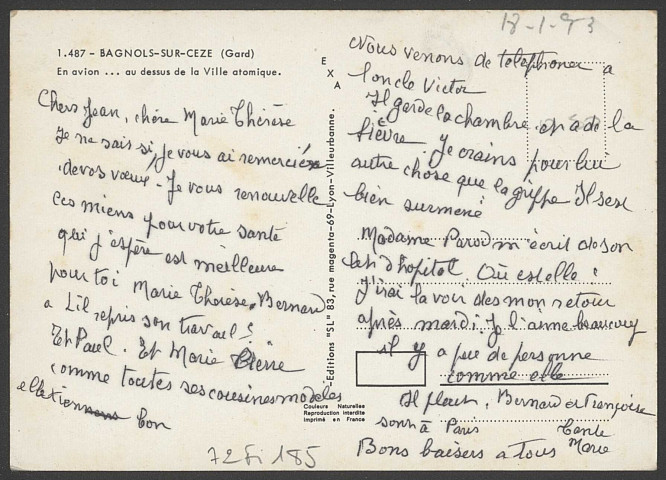 18-1-73
1.487 – BAGNOLS-SUR-CEZE (Gard)
En avion ... au dessus de la Ville atomique.
EXA
Chers Jean, chère Marie Thérèse
Je ne sais si je vous ai remerciés
de vos vœux - Je vous renouvelle
les miens pour votre santé
qui j'espère est meilleure
pour toi Marie Thérèse. Bernard
a t il repris son travail ?
Et Paul. Et Marie
comme toutes ses cousines modèles
elle tien bon
Editions "SL" 83, rue magenta-69-Lyon-Villeurbanne.
Couleurs Naturelles
Reproduction interdite
imprimé en France
Nous venons de telephoner a
l'oncle Victor
Il garde la chambre et a de la
fièvre. Je crains pour lui
autre chose que la grippe Il s'est
bien surmené
Madame Parod m'écrit de son
lit d'hôpital. Où est elle ?
J'irai la voir des mon retour
après mardi. Je l'aime beaucoup
il y a peu de personne
comme elle
Il pleut, Bernard et Françoise
sont à Paris
Tante
Bons baisers a tous Marie
72 Fi 185